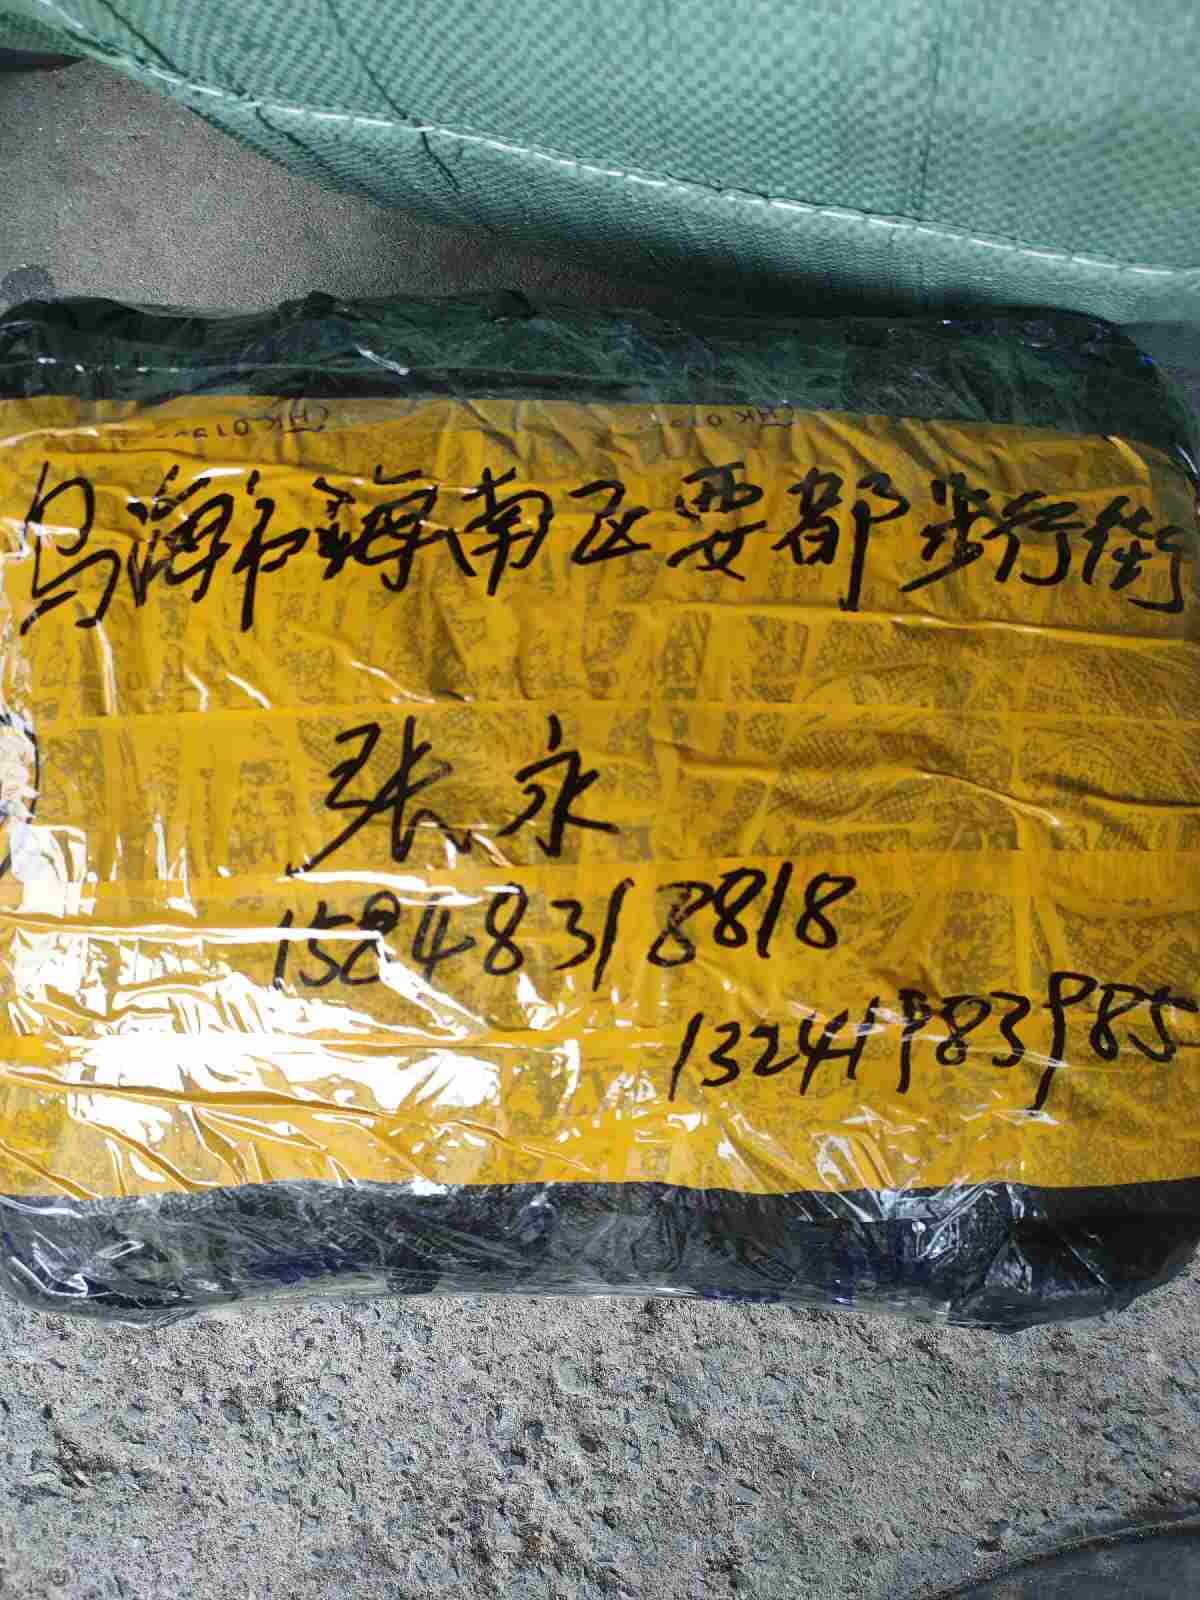 乌海市海南区要都步行街
张永
15848318818
13241983985